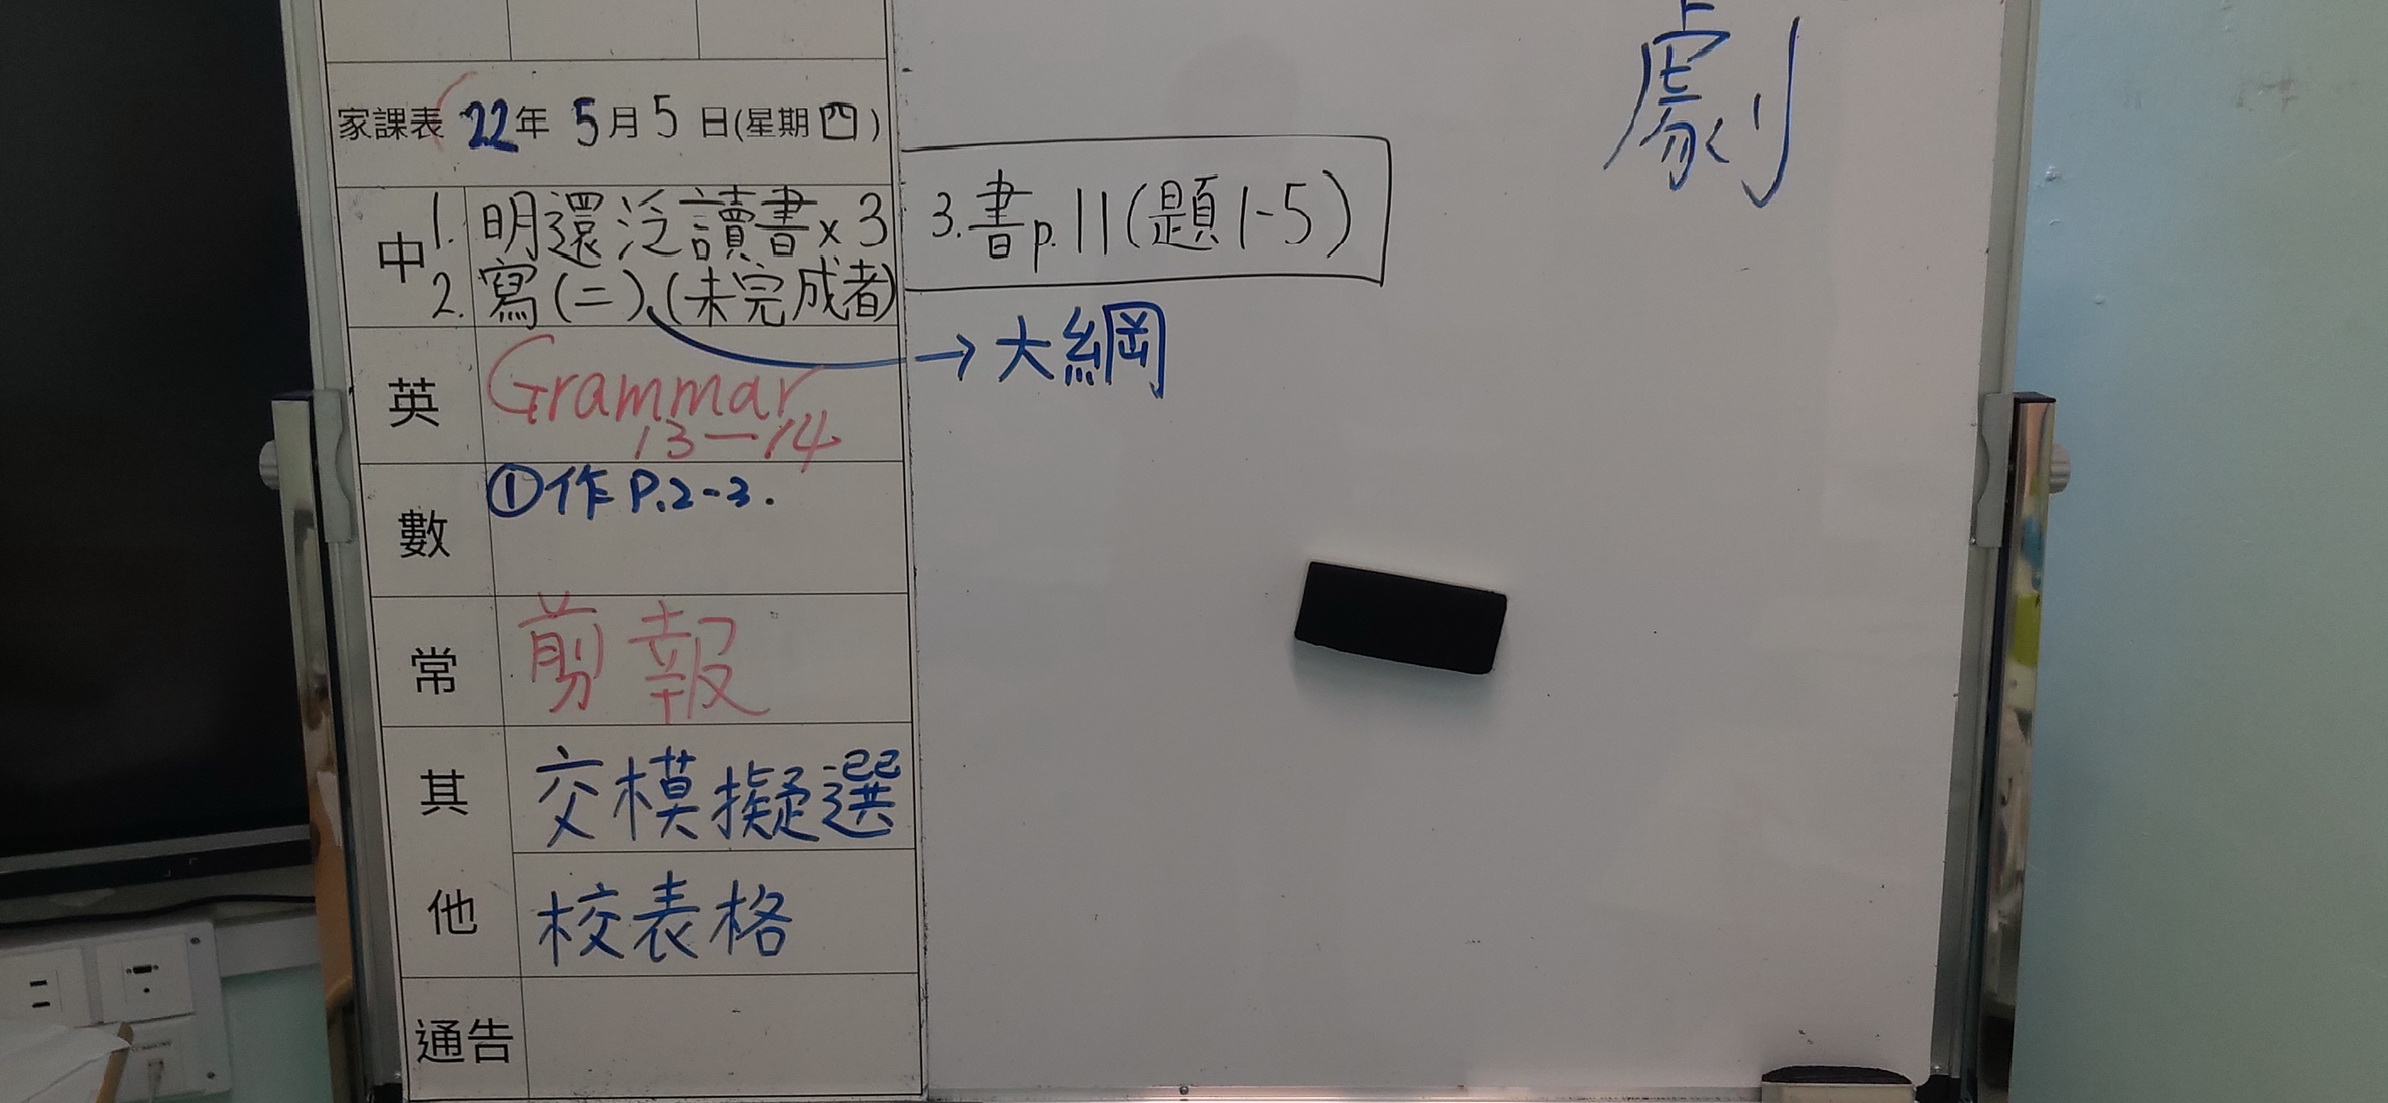 劇
家課表 22年 5月5日(星期四)
中 1. 明還泛讀書x3
3.書p.11(題1-5)
2. 寫(二)(未完成者)
→大綱
英 Grammar
13-14
數 ①作P.2-3.
常 剪報
其他 交模擬選
校表格
通告